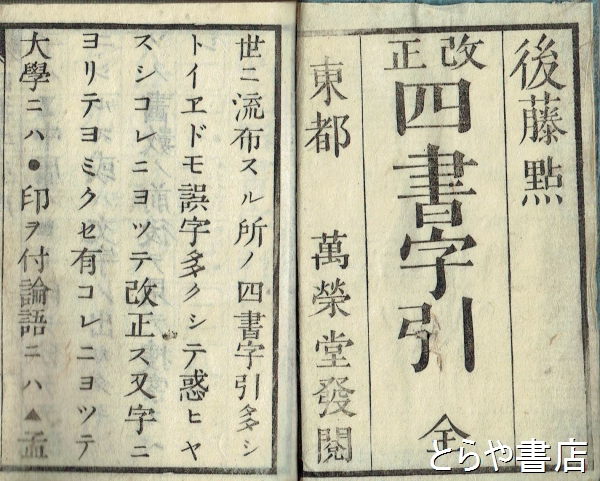 後藤點
改正
四書字引 全
東都 萬榮堂發閲
世ニ流布スル所ノ四書字引多シ
トイヱドモ誤字多クシテ惑ヒヤ
スシコレニヨツテ改正ス又字ニ
ヨリテヨミクセ有コレニヨツテ
大學ニハ●印ヲ付論語ニハ▲孟
とらや書店